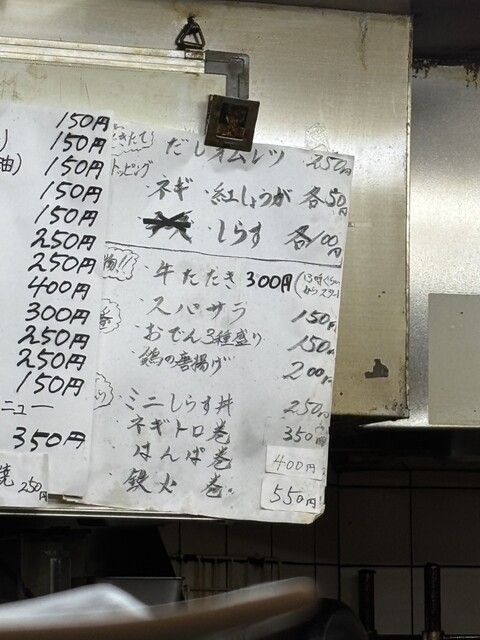 150円
150円
油) 150円
150円
150円
250円
250円
400円
300円
250円
250円
150円
ニュー
350円
焼 250円
きたて!
だしオムレツ 250円
トッピング
・ネギ ・紅しょうが 各50円
・しらす 各100円
物!!
・牛たたき 300円 (13時くらいからスタート
・スパサラ 150円
・おでん3種盛り 150円
・鶏の唐揚げ 200円
・ミニしらす丼 250円
・ネギトロ巻 350円
・はんぱ巻 400円
・鉄火巻 550円